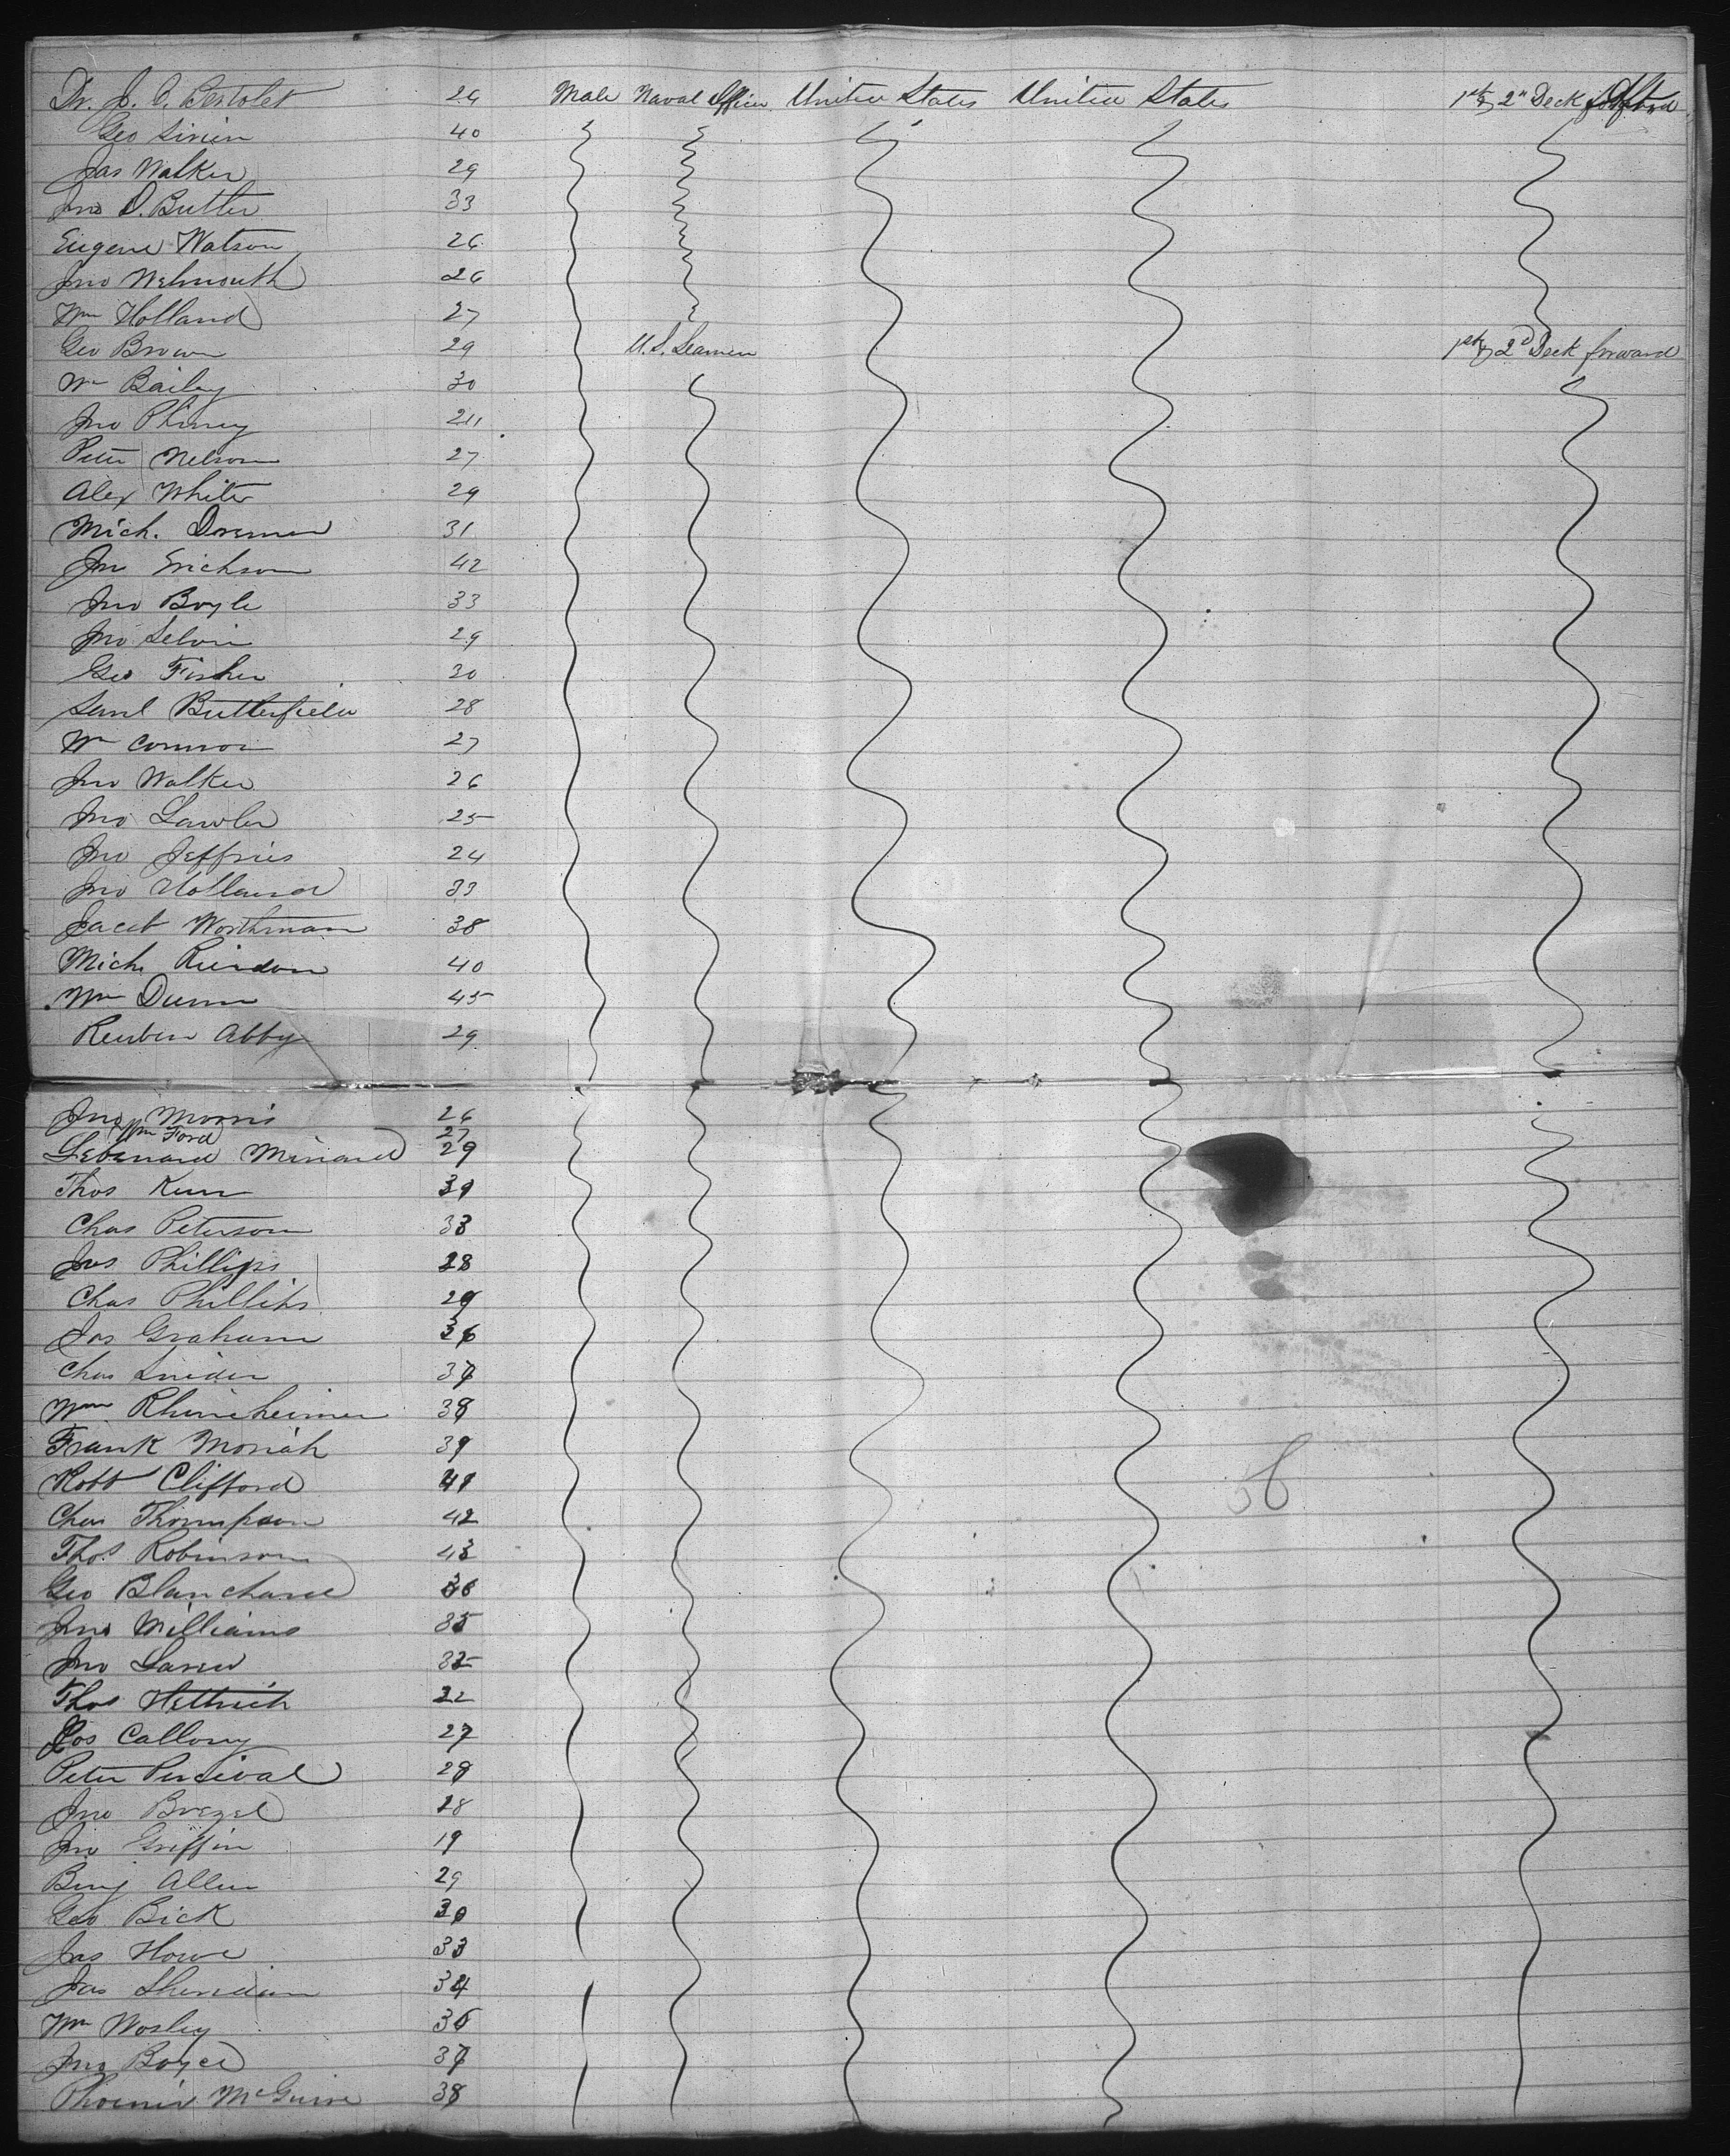 Dr. J. O. Bertolet 26 Male Naval Officer United States United States 1st & 2d Deck
Geo 40
Jas Walker 29
Jno D. Butler 33
Eugene Watson 26
Jno Welmouth 26
Wm Holland 27
Geo Brown 29 U.S. Seamen 1st & 2d Deck forward
Wm Bailey 30
Jno Phiney
Peter Nelson 27
Alex White 29
Mich. 31
Jno Erichson 42
Jno Boyle 33
Jno 29
Geo Fisher 30
Saml Butterfield 28
Wm Connor 27
Jno Walker 26
Jno Lawler 25
Jno Jeffries 24
Jno Holland 33
Jacob Worthman 38
Mich. Riordon 40
Wm Dunn 45
Reuben Abby 29
Jno Morris 26
Wm Ford 27
Minard 29
Thos
Chas Peterson 33
Jas Phillips 28
Chas Phillips 29
Jos Graham 36
Chas Snider 37
Wm Rhineheimer 38
Frank Moriah 39
Robt Clifford 41
Chas Thompson 42
Thos. Robinson 43
Geo Blanchard 36
Jno Williams 35
Jno
Thos Hettrich 22
Jos Callony 27
Peter Percival 28
Jno 28
Jno Griffin 19
Benj Allen 29
Geo Bick 30
Jas Howe 33
Jas Sheridan 34
Wm Wosley 36
Jno Boyce 37
Phoenix McGuire 38
56